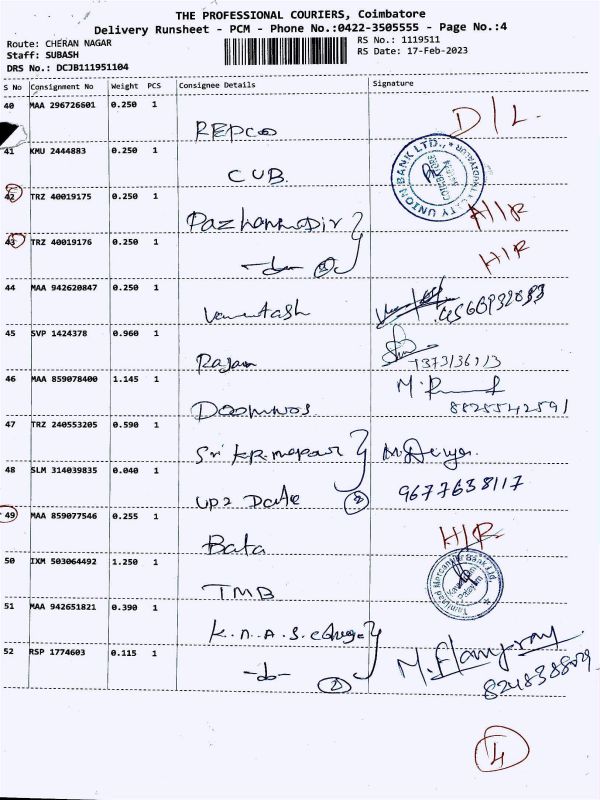 THE PROFESSIONAL COURIERS, Coimbatore
Delivery Runsheet - PCM - Phone No.:0422-3505555 - Page No.:4
Route: CHERAN NAGAR
RS No.: 1119511
Staff: SUBASH
RS Date: 17-Feb-2023
DRS No.: DCJB111951104
S No Consignment No Weight PCS Consignee Details Signature
40 MAA 296726601 0.250 1
REPCO D/L.
41 KMU 2444883 0.250 1
CUB
CITY UNION BANK LTD.,
COIMBATORE
42 TRZ 40019175 0.250 1
43 TRZ 40019176 0.250 1
-do- 2 H/R
44 MAA 942620847 0.250 1
45 SVP 1424378 0.960 1
Rajan
46 MAA 859078400 1.145 1
8825542591
47 TRZ 240553205 0.590 1
48 SLM 314039835 0.040 1
UP2 Date 2 9677638117
49 MAA 859077546 0.255 1
Bata H/R
50 IXM 503064492 1.250 1
TMB
Tamilnad Mercantile Bank Ltd.
51 MAA 942651821 0.390 1
52 RSP 1774603 0.115 1
-do- 2
4